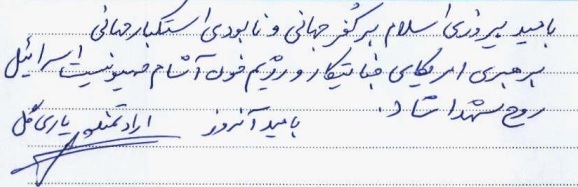 بامید پیروزی اسلام بر کفر جهانی و نابودی استکبار جهانی
برهبری امریکای جنایتکار و رژیم خون آشام صهیونیست اسرائیل
روح شهدا شاد.
بامید آنروز ارادتمند یاری گل